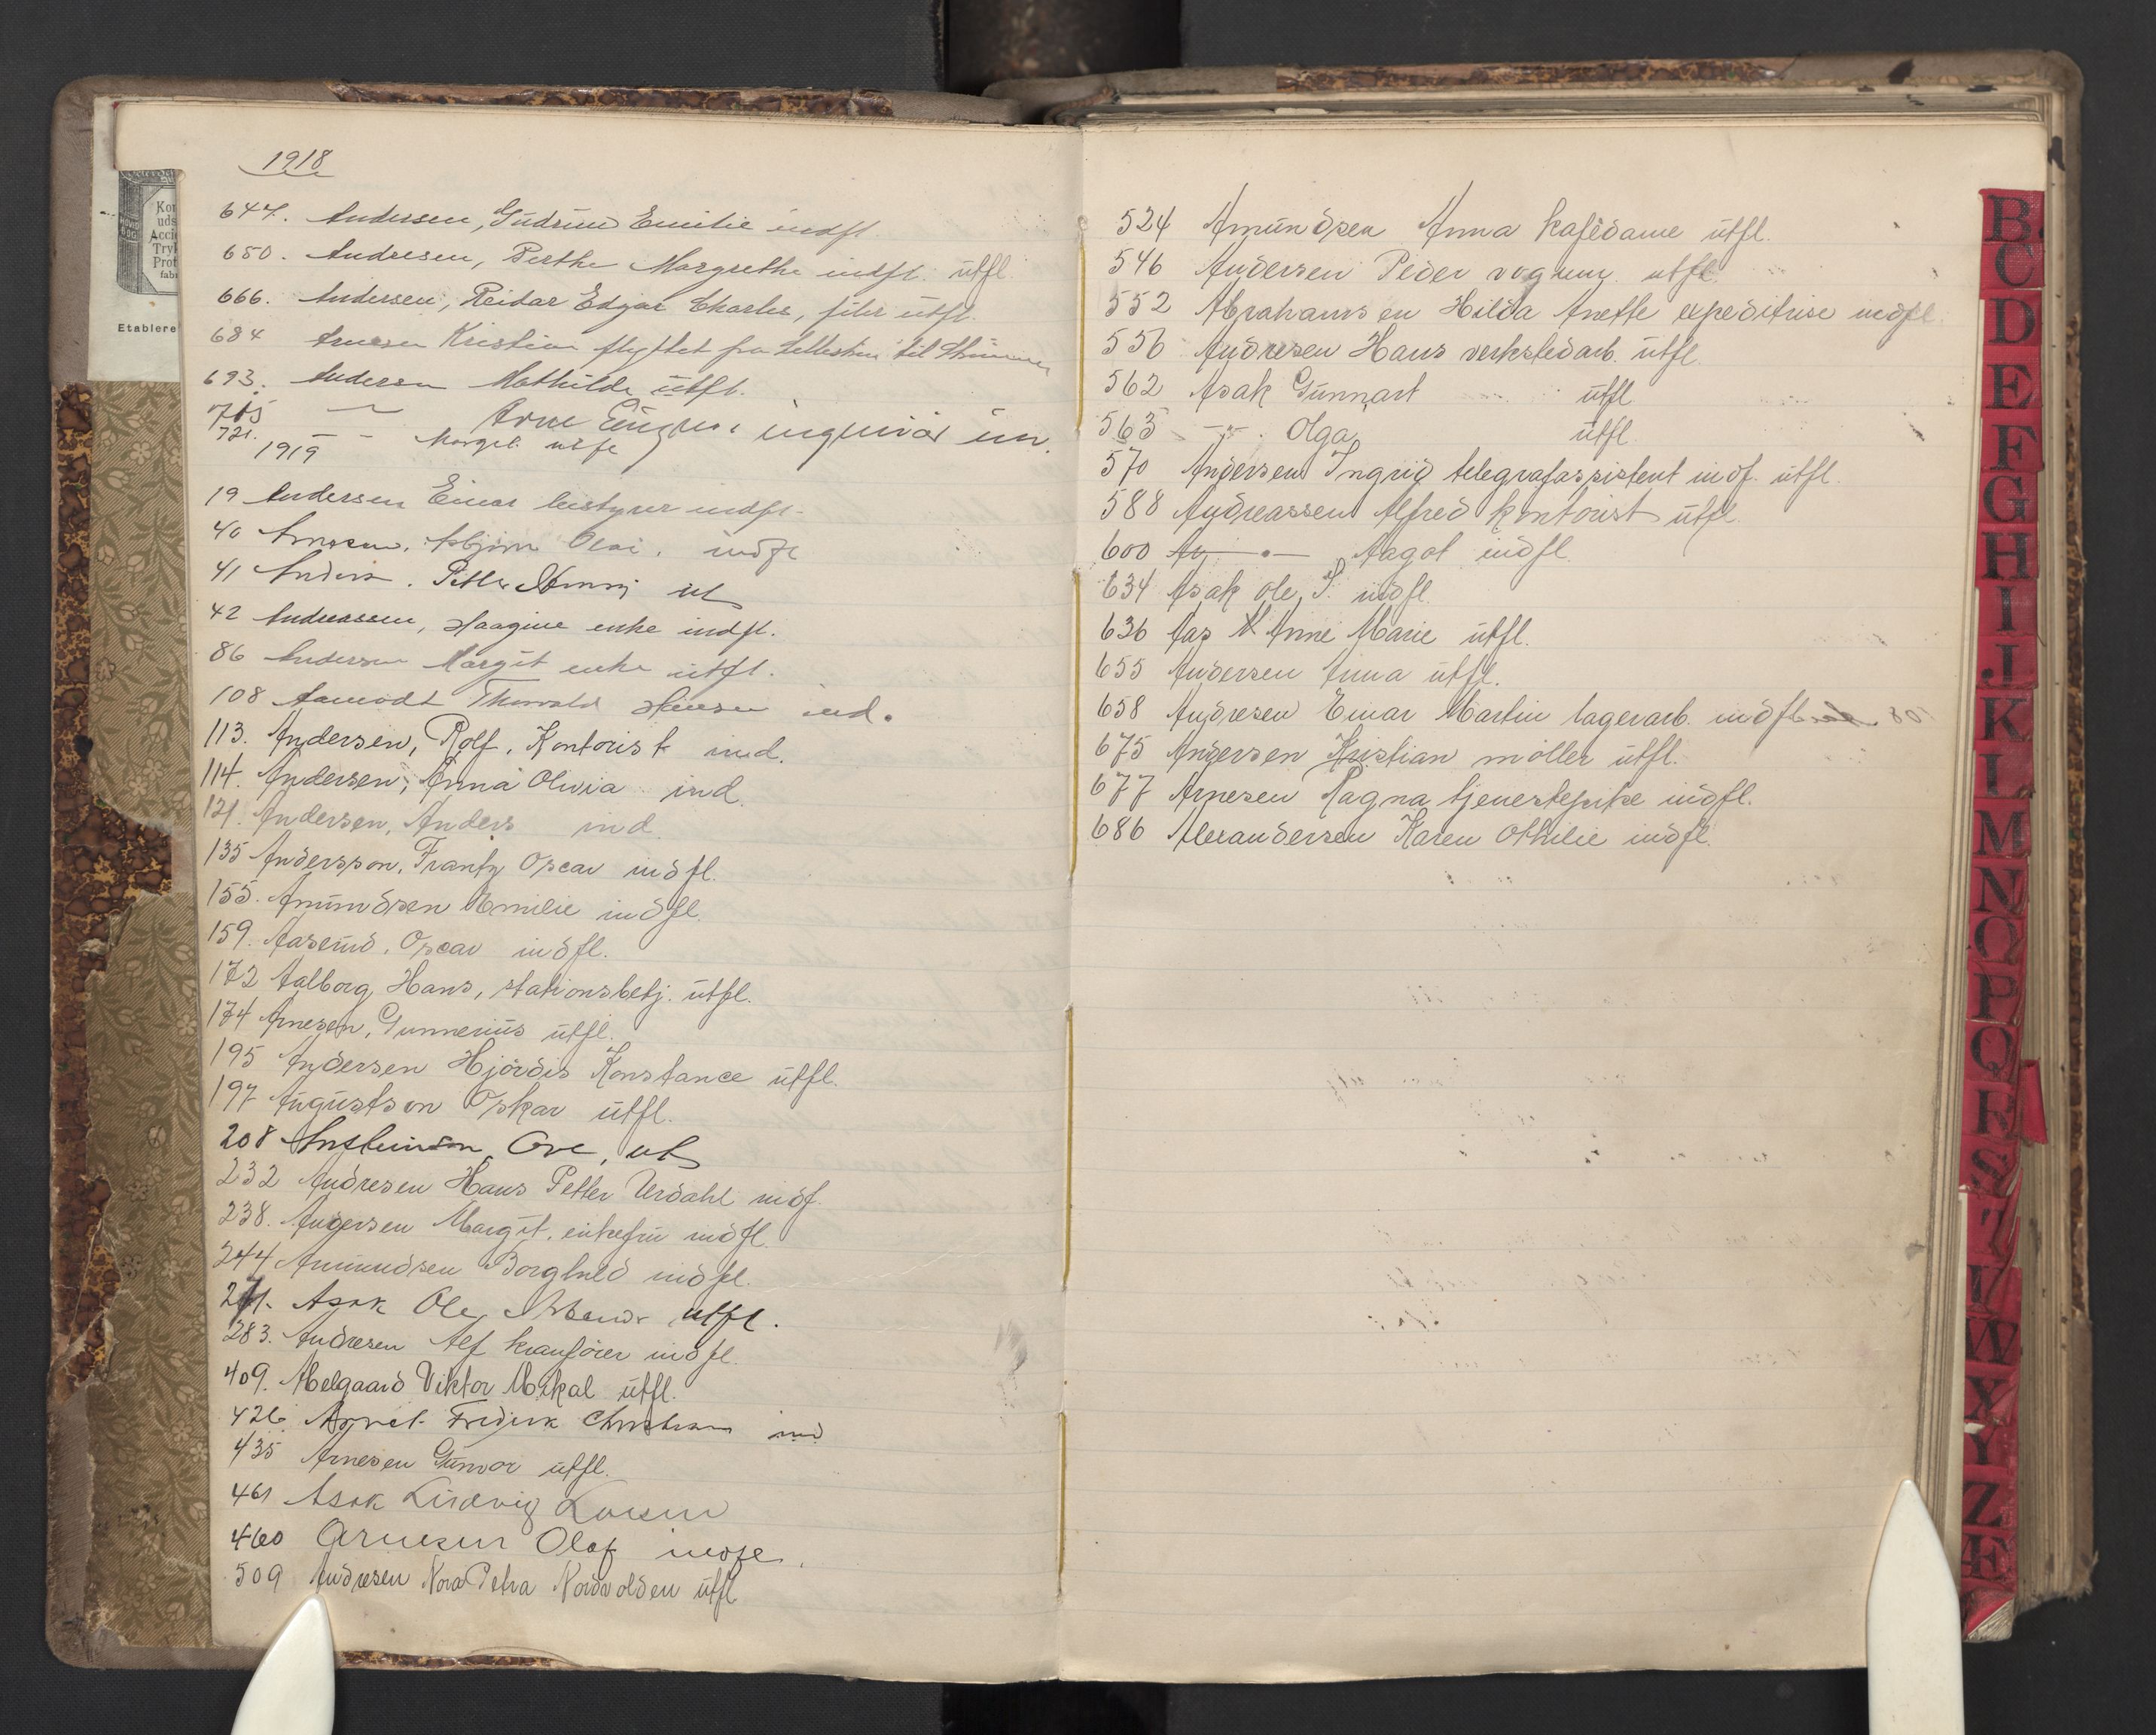 1918
647. Andersen, Gudrun Emilie indfl
650. Andresen, Perthe Margrethe indfl. utfl
666. Andersen, Reidar Edgar Charles, filer utfl.
684 Arnesen Kristian flyttet fra til
693. Andersen Mathilde utfl.
715 — Arne ingeniør inn.
721. — - Margit utfl
1919
19 Andersen Einar bestyrer indfl.
40 Arnesen. Asbjørn Olai. indfl
41 Anders. Petter ut
42 Andreassen, Haagine enke indfl.
86 Andersen Margit enke utfl.
108 Aamodt Thorvald Hansen ind.
113. Andersen, Rolf. Kontorist ind.
114. Andersen, Anna Olivia ind.
121. Andersen, Anders ind.
135 Andersson, Frantz Oscar indfl.
155. Amundsen Emilie indfl.
159. Aaserud, Oscar indfl.
172 Aalborg, Hans, stationsbetj. utfl.
174 Arnesen, Gunnerius utfl.
195 Andersen Hjørdis Konstance utfl.
197 Augustson Oskar utfl.
208 Ansteinson Ove, ut
232 Andresen Hans Petter Urdahl indf.
238. Andersen Margit. enkefru indfl.
244 Amundsen Borghild indfl.
271. Asak Ole utfl.
283. Andresen Alf kranfører indfl.
409. Melgaard Viktor Mikal utfl.
426. Fredrik Christian ind
435 Arnesen Gunvor utfl.
461 Asak Ludvig Larsen
460 Arnesen Olaf indfl.
509 Andresen Nora Petra Nordvolden utfl
524 Amundsen Anna kafedame utfl.
546 Andersen Peder vognm. utfl.
552 Abrahamsen Hilda Anette expeditrise indfl.
556 Andresen Hans verkstedarb. utfl.
562 Asak Gunnart utfl
563 -"- Olga utfl.
570 Andersen Ingrid telegrafassistent indf. utfl.
588 Andreassen Alfred kontorist utfl
600 An —"— Aagot indfl.
634 Asak Ole J. indfl.
636 Aas Anne Marie utfl.
655 Andersen Anna utfl.
658 Andresen Einar Martin lagerarb. indfl.
675 Andersen Kristian møller utfl.
677 Arnesen Ragna tjenestepike indfl.
686 Alexandersen Karen Othilie indfl.
Kor
uds
Acci
Tryk
Prot
fab
Etablere
B
C
D
E
F
G
H
I
J
K
L
M
N
O
P
Q
R
S
T
U
W
X
Y
Z
Æ